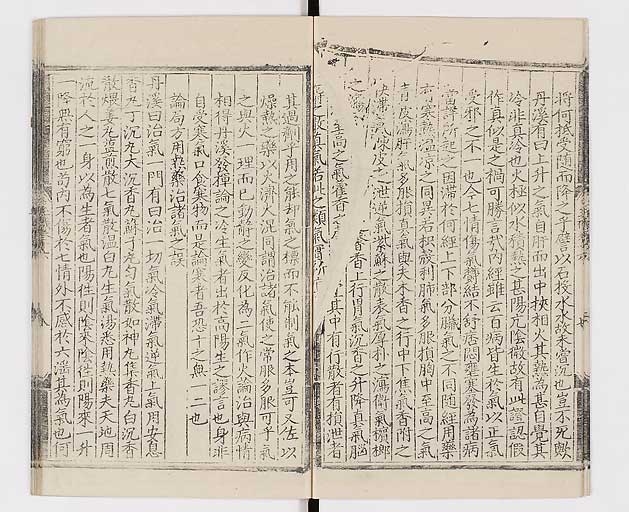 將何抵受隨而降之乎譬以石投水水故未嘗沉也豈不死歟
丹溪有曰上升之氣自肝而出中挾相火其熱爲甚自覺其
冷非眞冷也火極似水積熱之甚陽亢陰微故有此證認假
作眞似是之禍可勝言哉內經雖云百病皆生於氣以正氣
受邪之不一也今七情傷氣鬱結不舒痞悶壅塞發爲諸病
當詳所起之因滯於何經上下部分臟氣之不同隨經用藥
有寒熱溫涼之同異若枳殼利肺氣多服損胸中至高之氣
青皮瀉肝氣多服損眞氣與夫木香之行中下焦氣香附之
快滯氣陳皮之泄逆氣紫蘇之散表氣厚朴之瀉衛氣檳榔
之瀉至高之氣藿香之上行胃氣沉香之升降眞氣腦
麝之散眞氣若此之類氣實所宜其中有行散者有損泄者
其過劑乎用之能却氣之標而不能制氣之本豈可又佐以
燥熱之藥以火濟火混同謂治諸氣使之常服多服可乎氣
之與火一理而已動靜之變反化爲二氣作火論治與病情
相得丹溪發揮論之冷生氣者出於高陽生之謬言也身非
自受寒氣口食寒物而是論寒者吾恐十之無一二也
論局方用熱藥治諸氣之誤
丹溪曰治氣一門有曰治一切氣冷氣滯氣逆氣上氣用安息
香丸丁沉丸大沉香丸蘇子丸勻氣散如神丸集香丸白沉香
散煨薑丸鹽煎散七氣散溫白丸生氣湯悉用熱藥夫天地周
流於人之一身以爲生者氣也陽徃則陰來陰徃則陽來一升
一降無有窮也苟內不傷於七情外不感於六滛其爲氣也何